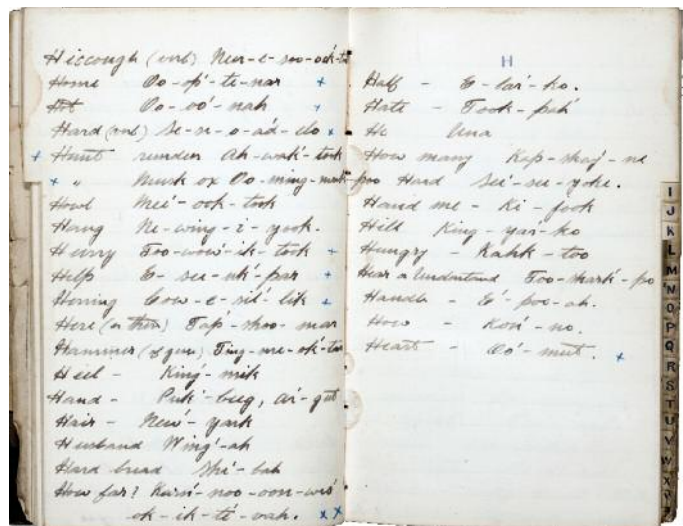 Hiccough (verb) Neer-e-soo-ock-t
Home Oo-op'-te-nar +
Hot Oo-oo'-nah +
Hard (verb) Se-se-o-ad-elo x
+ Hunt reindeer Ah-wak'-took
+ " Musk ox Oo-ming-muk-poo
Howl Mee'-ook-took
Hang Ne-wing-i-yook.
Hurry Too-wow'-ik-took +
Help E-see-uk'-par +
Herring Cow-e-sil'-lik +
Here (or there) Tap'-shoo-mar
Hammer (of gun) Ting-me-ok-tar
Heel - King'-mik
Hand - Puk'-bug, ar'-gut
Hair - New'-yark
Husband Wing'-ah
Hard bread Shi'-bah
How far? Karn'-noo-oon-wis'
ok-ik-te'-vah. x x
H
Half - E-lar'-ko.
Hate - Took-pah'
He Una
How many Kap-shay'-ne
Hard See'-see-yoke.
Hand me - Ki-jook
Hill King-yar'-ko
Hungry - Kahk-too
Hear or Understand Too-shark'-po
Handle - E'-poo-ah.
How - Kon'-no.
Heart - Oo'-mut. +
I
J
K
L
M
N
O
P
Q
R
S
T
U
V
W
X